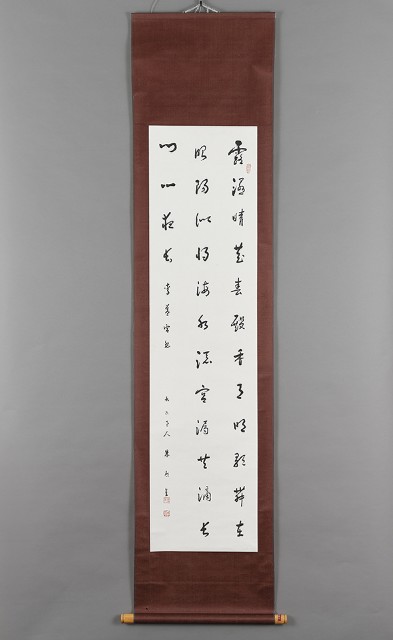 露濕晴花春殿香月明歌吹在
昭陽似將海水添宮漏共滴長
門一夜長 李益宮怨